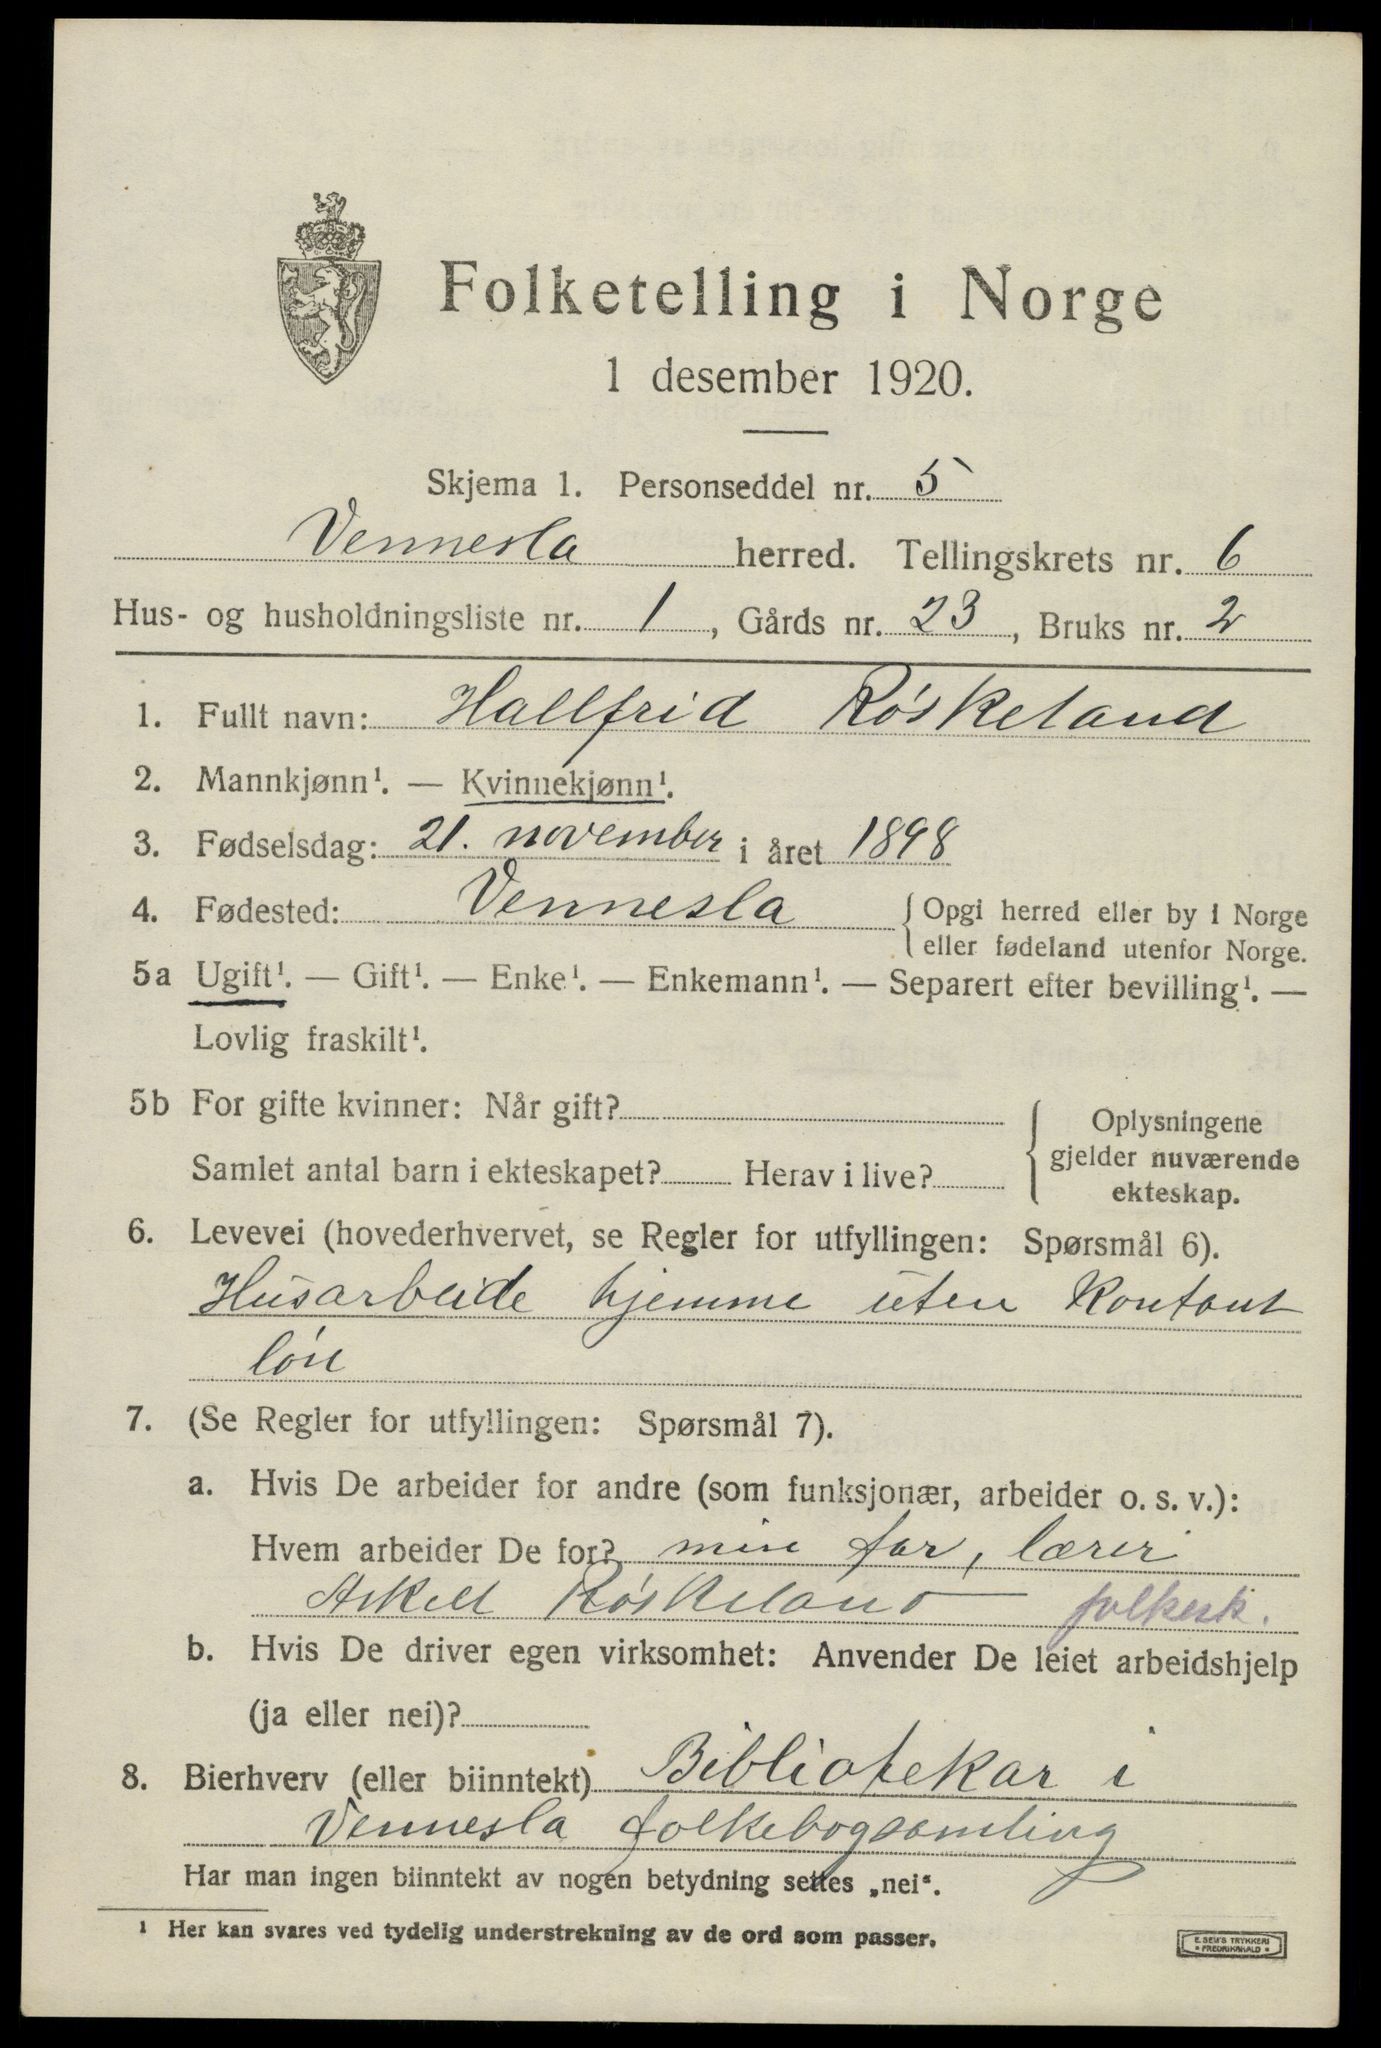 Folketelling i Norge
1 desember 1920.
Skjema 1. Personseddel nr. 5
Vennesla herred. Tellingskrets nr. 6
Hus- og husholdningsliste nr. 1, Gårds nr. 23, Bruks nr. 2
1. Fullt navn: Hallfrid Røskeland
2. Mannkjønn¹. — Kvinnekjønn¹.
3. Fødselsdag: 21. november i året 1898
4. Fødested: Vennesla { Opgi herred eller by i Norge
eller fødeland utenfor Norge.
5a Ugift¹. — Gift¹. — Enke¹. — Enkemann¹. — Separert efter bevilling¹. —
Lovlig fraskilt¹.
5b For gifte kvinner: Når gift?
Samlet antal barn i ekteskapet? Herav i live?
{ Oplysningene
gjelder nuværende
ekteskap.
6. Levevei (hovederhvervet, se Regler for utfyllingen: Spørsmål 6).
Husarbeide hjemme uten kontant
løn
7. (Se Regler for utfyllingen: Spørsmål 7).
a. Hvis De arbeider for andre (som funksjonær, arbeider o. s. v.):
Hvem arbeider De for? min far, lærer
Askell Røskeland folkesk.
b. Hvis De driver egen virksomhet: Anvender De leiet arbeidshjelp
(ja eller nei)?
8. Bierhverv (eller biinntekt) Bibliotekar i
Vennesla folkebogsamling
Har man ingen biinntekt av nogen betydning settes „nei“.
¹ Her kan svares ved tydelig understrekning av de ord som passer.
E. SEM'S TRYKKERI
FREDRIKSHALD